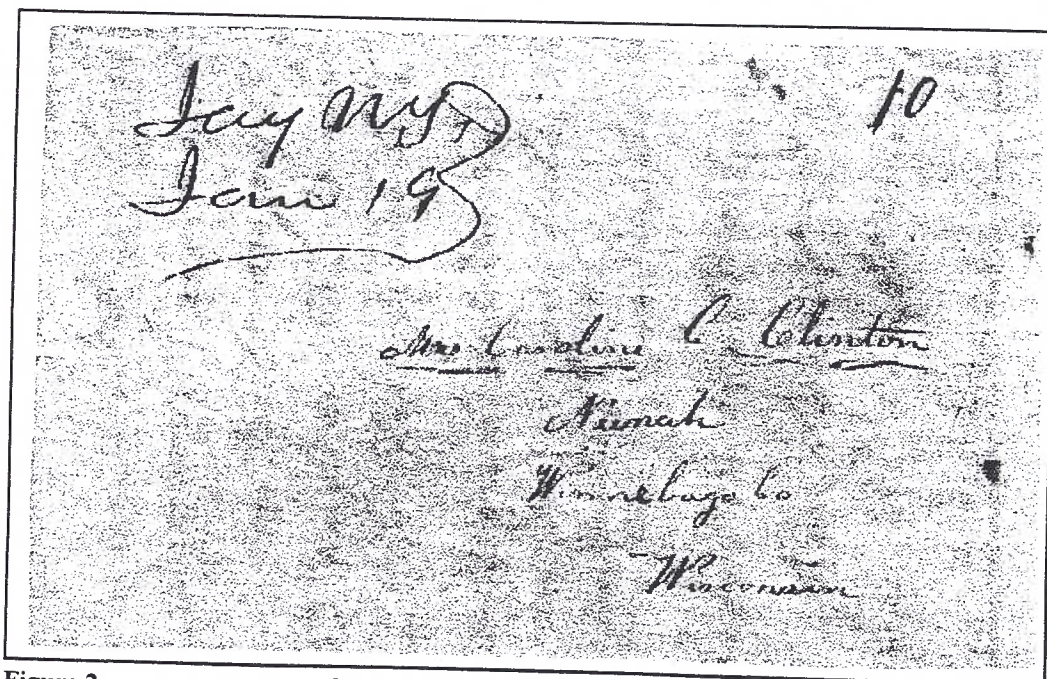 Jay N.Y.
10
Jan 19
Mrs Caroline C. Clinton
Neenah
Winnebago Co
Wisconsin
Figure 2